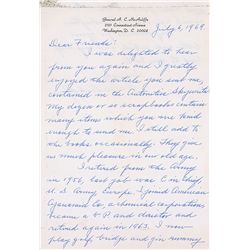 General A. C. McAuliffe
Connecticut Avenue
Washington, D. C. 20008
July 6, 1969
Dear Friends:
I was delighted to hear
from you again and I greatly
enjoyed the article you sent me,
contained in the Automotive
My dozen or so scrapbooks contain
many items which you were kind
enough to send me. I still add to
the books occasionally. They give
us much pleasure in our old age.
I retired from the Army
in 1956, last job was C in Chief,
U. S. Army Europe. I joined American
Cyanamid Co, a chemical corporation,
became a V P and director and
retired again in 1963. I now
play golf, bridge and gin rummy